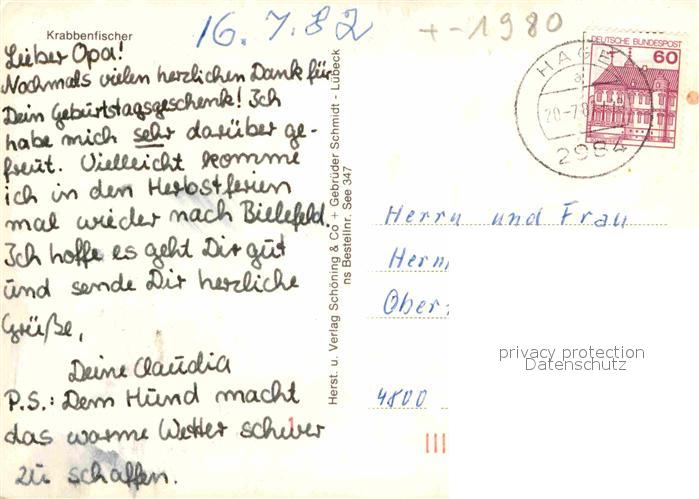 Krabbenfischer
16.7.82
+-1980
Lieber Opa!
Nochmals vielen herzlichen Dank für
Dein Geburtstagsgeschenk! Ich
habe mich sehr darüber ge-
freut. Vielleicht komme
ich in den Herbstferien
mal wieder nach Bielefeld.
Ich hoffe es geht Dir gut
und sende Dir herzliche
Grüße,
Deine Claudia
P.S.: Dem Hund macht
das warme Wetter schwer
zu schaffen.
Herst. u. Verlag Schöning & Co + Gebrüder Schmidt - Lübeck
ns Bestellnr. See 347
DEUTSCHE BUNDESPOST
60
HAGE
a
20-7.8
2984
Herrn und Frau
Herm
Ober
4800
privacy protection
Datenschutz